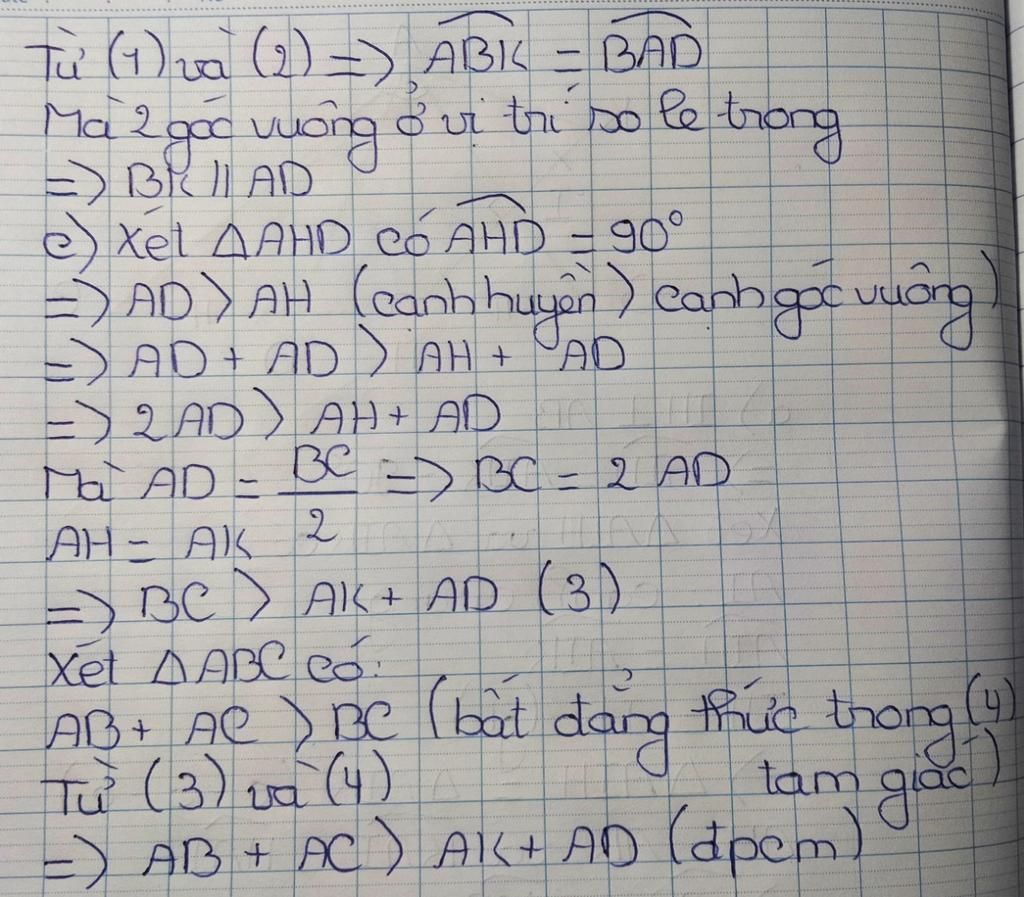 Từ (1) và (2) => ABK = BAD
Mà 2 góc vuông ở vị trí so le trong
=> BK // AD
c) Xét ΔAHD có AHD = 90°
=> AD > AH (cạnh huyền > cạnh góc vuông)
=> AD + AD > AH + AD
=> 2 AD > AH + AD
Mà AD = BC/2 => BC = 2 AD
AH = AK
=> BC > AK + AD (3)
Xét ΔABC có:
AB + AC > BC (bất đẳng thức trong (4)
tam giác)
Từ (3) và (4)
=> AB + AC > AK + AD (đpcm)